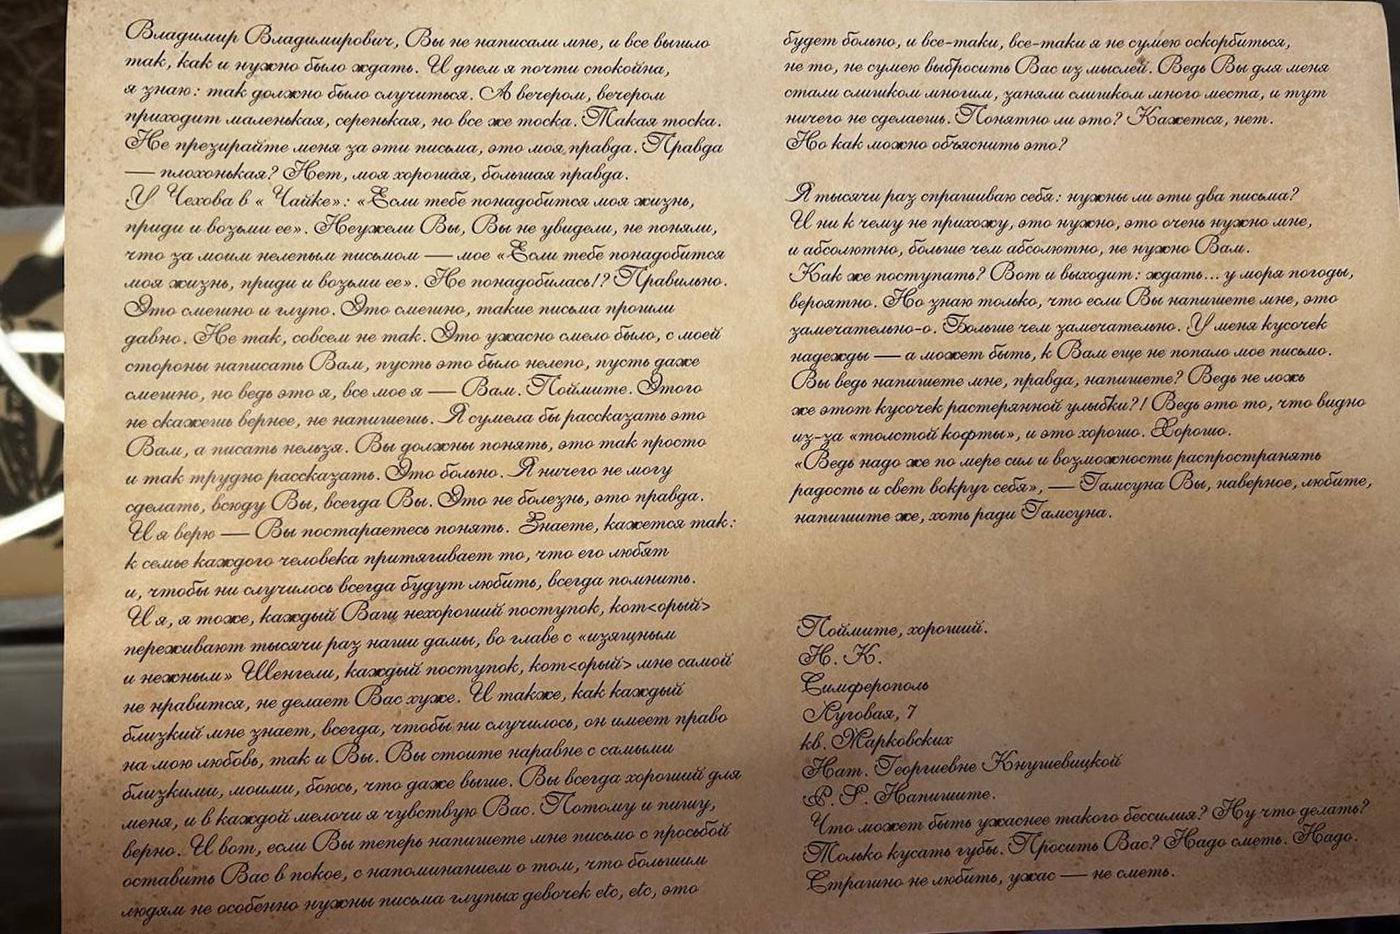 Владимир Владимирович, Вы не написали мне, и все вышло
так, как и нужно было ждать. И днем я почти спокойна,
я знаю: так должно было случиться. А вечером, вечером
приходит маленькая, серенькая, но все же тоска. Такая тоска.
Не презирайте меня за эти письма, это моя правда. Правда
— плохонькая? Нет, моя хорошая, большая правда.
У Чехова в « Чайке»: «Если тебе понадобится моя жизнь,
приди и возьми ее». Неужели Вы, Вы не увидели, не поняли,
что за моим нелепым письмом — мое «Если тебе понадобится
моя жизнь, приди и возьми ее». Не понадобилась!? Правильно.
Это смешно и глупо. Это смешно, такие письма прошли
давно. Не так, совсем не так. Это ужасно смело было, с моей
стороны написать Вам, пусть это было нелепо, пусть даже
смешно, но ведь это я, все мое я — Вам. Поймите. Этого
не скажешь вернее, не напишешь. Я сумела бы рассказать это
Вам, а писать нельзя. Вы должны понять, это так просто
и так трудно рассказать. Это больно. Я ничего не могу
сделать, всюду Вы, всегда Вы. Это не болезнь, это правда.
И я верю — Вы постараетесь понять. Знаете, кажется так:
к семье каждого человека притягивает то, что его любят
и, чтобы ни случилось всегда будут любить, всегда помнить.
И я, я тоже, каждый Ваш нехороший поступок, кот<орый>
переживают тысячи раз наши дамы, во главе с «изящным
и нежным» Шенгели, каждый поступок, кот<орый> мне самой
не нравится, не делает Вас хуже. И также, как каждый
близкий мне знает, всегда, чтобы ни случилось, он имеет право
на мою любовь, так и Вы. Вы стоите наравне с самыми
близкими, моими, боюсь, что даже выше. Вы всегда хороший для
меня, и в каждой мелочи я чувствую Вас. Потому и пишу,
верно. И вот, если Вы теперь напишете мне письмо с просьбой
оставить Вас в покое, с напоминанием о том, что большим
людям не особенно нужны письма глупых девочек etc, etc, это
будет больно, и все-таки, все-таки я не сумею оскорбиться,
не то, не сумею выбросить Вас из мыслей. Ведь Вы для меня
стали слишком многим, заняли слишком много места, и тут
ничего не сделаешь. Понятно ли это? Кажется, нет.
Но как можно объяснить это?
Я тысячи раз спрашиваю себя: нужны ли эти два письма?
И ни к чему не прихожу, это нужно, это очень нужно мне,
и абсолютно, больше чем абсолютно, не нужно Вам.
Как же поступать? Вот и выходит: ждать... у моря погоды,
вероятно. Но знаю только, что если Вы напишете мне, это
замечательно-о. Больше чем замечательно. У меня кусочек
надежды — а может быть, к Вам еще не попало мое письмо.
Вы ведь напишете мне, правда, напишете? Ведь не ложь
же этот кусочек растерянной улыбки?! Ведь это то, что видно
из-за «толстой кофты», и это хорошо. Хорошо.
«Ведь надо же по мере сил и возможности распространять
радость и свет вокруг себя», — Гамсуна Вы, наверное, любите,
напишите же, хоть ради Гамсуна.
Поймите, хороший.
Н. К.
Симферополь
Луговая, 7
кв. Марковских
Нат. Георгиевне Кнушевицкой
P. S. Напишите.
Что может быть ужаснее такого бессилия? Ну что делать?
Только кусать губы. Просить Вас? Надо сметь. Надо.
Страшно не любить, ужас — не сметь.